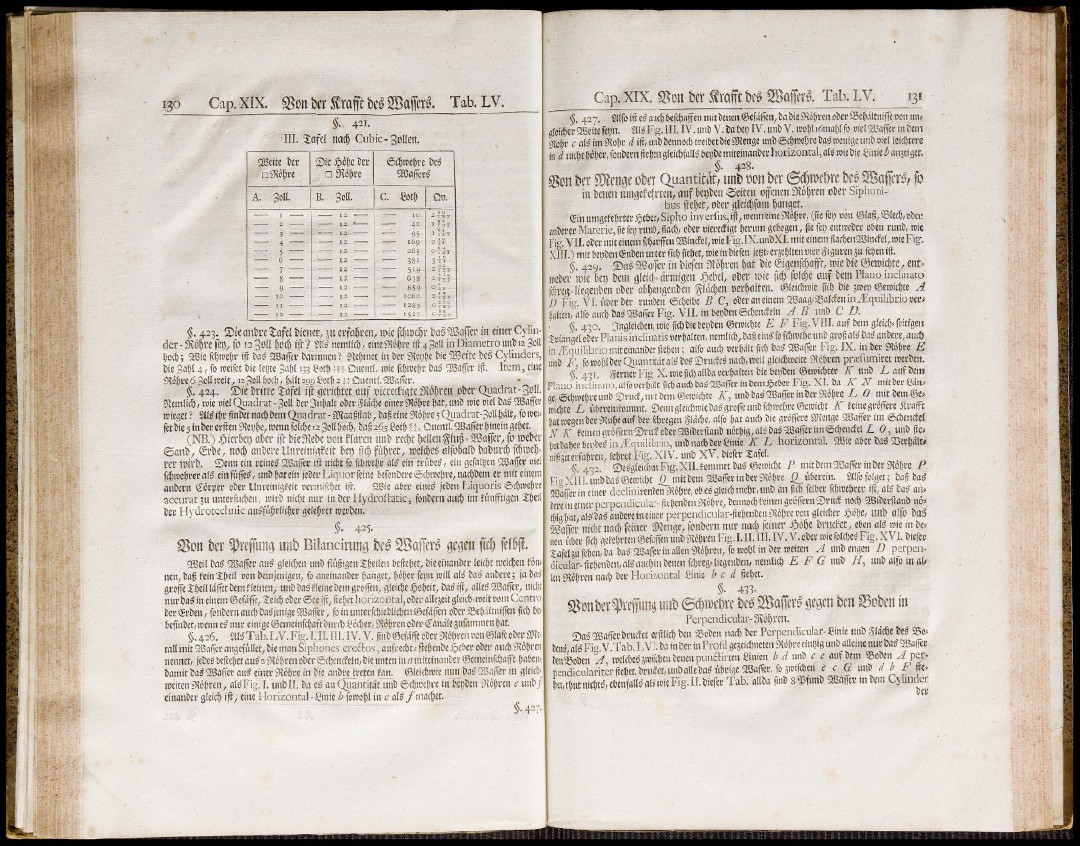 130 Cap. XIX. Von der Krafft des Wassers. Tab. LV.
§. 421.
III. Tafel nach Cubic-Zollen.
Weite der □ Röhre | Die Höhe der □ Röhre | Schwehre des Wassers
A. Zoll. | B. Zoll. | C. Loth | Qv.
— 1 — | — 12 — | — 10
— 2 — | — 12 — | — 42
— 3 — | — 12 — | — 95
— 4 — | — 12 — | — 169
— 5 — | — 12 — | — 265
— 6 — | — 12 — | — 381
— 7 — | — 12 — | — 519
— 8 — | — 12 — | — 678
— 9 — | — 12 — | — 859
— 10 — | — 12 — | — 1060
— 11 — | — 12 — | — 1283
— 12 — | — 12 — | — 1527
§. 423. Die andre Tafel dienet, zu erfahren, wie schwehr das Wasser in einer Cylin-
der-Röhre sey, so 12 Zoll hoch ist? Als nemlich, eine Röhre ist 4 Zoll in Diametro und 12 Zoll
hoch; Wie schwehr ist das Wasser darinnen? Nehmet in der Reyhe die Weite des Cylinders,
die Zahl 4, so weiset die letzte Zahl 133 Loth Quentl. wie schwehr das Wasser ist. Item, eine
Röhre 6 Zoll weit, 12 Zoll hoch, hält 299 Loth 2 Quentl. Wasser.
§. 424. Die dritte Tafel ist gerichtet auf viereckigte Röhren oder Quadrat-Zoll.
Nemlich, wie viel Quadrat-Zoll der Inhalt oder Fläche einer Röhre hat, und wie viel das Wasser
wieget? Als ihr findet nach dem Quadrat-Maaßstab, daß eine Röhre 5 Quadrat-Zoll hält, so wei-
set die 5 in der ersten Reyhe, wenn solche 12 Zoll hoch, daß 265 Loth Quentl. Wasser hinein gehet.
(NB.) Hierbey aber ist die Rede von klaren und recht hellen Fluß-Wasser, so weder
Sand, Erde, noch andere Unreinigkeit bey sich führet, welches alsobald dadurch schweh-
rer wird. Denn ein reines Wasser ist nicht so schwehr als ein trübes, ein gesaltzen Wasser viel
schwehrer als ein süsses, und hat ein jeder Liquor seine besondere Schwehre, nachdem er mit einem
andern Cörper oder Unreinigkeit vermischet ist. Wie aber eines jeden Liquoris Schwehre
accurat zu untersuchen, wird nicht nur in der Hydrostatic, sondern auch im künfftigen Theil
der Hydrotechnic ausführlicher gelehret werden.
§. 425.
Von der Pressung und Bilancirung des Wassers gegen sich selbst.
Weil das Wasser aus gleichen und flüßigen Theilen bestehet, die einander leicht weichen kön-
nen, daß kein Theil von denjenigen, so aneinander hanget, höher seyn will als das andere; ja das
grosse Theil lässet dem kleinen, und das kleine dem grossen, gleiche Hoheit, das ist, alles Wasser, nicht
nur das in einem Gefässe, Teich oder See ist, stehet horizontal, oder allezeit gleich-weit vom Centro
der Erden, sondern auch dasjenige Wasser, so in unterschiedlichen Gefässen oder Behältnissen sich be-
befindet, wenn es nur einige Gemeinschaft durch Löcher, Röhren oder Canäle zusammen hat.
§. 426. Als Tab. LV. Fig. I. II. III. IV. V. sind Gefässe oder Röhren von Glase oder Me-
tall mit Wasser angefüllet, die man Siphones erectos, aufrecht-stehende Heber oder auch Röhren
nennet, jedes bestehet aus 2 Röhren oder Schenckeln, die unten in a miteinander Gemeinschafft haben,
damit das Wasser aus einer Röhre in die andre tretten kan. Gleichwie nun das Wasser in gleich-
weiten Röhren, als Fig. I. und II. da es an Quantität und Schwehre in beyden Röhren e und f
einander gleich ist, eine Horizontal-Linie b sowohl in e als f machet.
§. 427.
Cap. XIX. Von der Krafft des Wassers. Tab. LV. 131
§. 427. Also ist es auch beschaffen mit denen Gefässen, da die Röhren oder Behältnisse von un-
gleicher Weite seyn. Als Fig. III. IV. und V. da bey IV. und V. wohl 16mahl so viel Wasser in dem
Rohr c als im Rohr d ist, und dennoch treibet die Menge und Schwehre das wenige und viel leichtere
in d nicht höher, sondern stehen gleichfalls beyde miteinander horizontal, als wie die Linie b anzeiget.
§. 428.
Von der Menge oder Quantität, und von der Schwehre des Wassers, so
in denen umgekehrten, auf beyden Seiten offenen Röhren oder Siphoni-
bus stehet, oder gleichsam hanget.
Ein umgekehrter Heber, Sipho inversus, ist, wenn eine Röhre, (sie sey von Glaß, Blech, oder
anderer Materie, sie sey rund, flach, oder viereckigt herum gebogen, sie sey entweder oben rund, wie
Fig. VII. oder mit einem scharffen Winckel, wie Fig. IX. und XI. mit einem flachen Winckel, wie Fig.
XIII.) mit beyden Enden unter sich stehet, wie in diesen jetzt-erzehlten vier Figuren zu sehen ist.
§. 429. Das Wasser in diesen Röhren hat die Eigenschafft, wie die Gewichte, ent-
weder wie bey dem gleich-ärmigen Hebel, oder wie sich solche auf dem Plano inclinato
schreg-liegenden oder abhangenden Flächen verhalten. Gleichwie sich die zwey Gewichte A
D Fig. VI. über der runden Scheibe B C, oder an einem Waag-Balcken in Æquilibrio ver-
halten, also auch das Wasser Fig. VII. in beyden Schenckeln A B und C D.
§. 430. Ingleichen, wie sich die beyden Gewichte E F Fig. VIII. auf dem gleich-seitigen
Triangel oder Planis inclinatis verhalten, nemlich, daß eins so schwehr und groß als das andere, auch
in Æquilibrio miteinander stehen; also auch verhält sich das Wasser Fig. IX. in der Röhre E
und F, so wohl der Quantität als des Druckes nach, weil gleichweite Röhren præsumiret werden.
§. 431. Ferner Fig. X. wie sich allda verhalten die beyden Gewichter K und L auf dem
Plano inclinato, also verhält sich auch das Wasser in dem Heber Fig. XI. da K N mit der Län-
ge, Schwehre und Druck, mit dem Gewichte K, und das Wasser in der Röhre L O mit dem Ge-
wichte L übereinkommt. Denn gleichwie das grosse und schwehre Gewicht K keine grössere Krafft
hat wegen der Ruhe auf der schregen Fläche, also hat auch die grössere Menge Wasser im Schenckel
N K keinen grössern Druck oder Widerstand nöthig, als das Wasser im Schenckel L O, und ste-
het daher beydes in Æquilibrio, und nach der Linie K L horizontal. Wie aber das Verhält-
niß zu erfahren, lehret Fig. XIV. und XV. dieser Tafel.
§. 432. Desgleichen Fig. XII. kommet das Gewicht P mit dem Wasser in der Röhre P
Fig XIII. und das Gewicht Q mit dem Wasser in der Röhre Q überein. Also folget; daß das
Wasser in einer declinirenden Röhre, ob es gleich mehr, und an sich selber schwehrer ist, als das an-
dere in einer perpendicular-stehenden Röhre, dennoch keinen grössern Druck noch Widerstand nö-
thig hat, als das andere in einer perpendicular-stehenden Röhre von gleicher Höhe, und also das
Wasser nicht nach seiner Menge, sondern nur nach seiner Höhe drucket, eben als wie in de-
nen über sich gekehrten Gefässen und Röhren Fig. I. II. III. IV. V. oder wie solches Fig. XVI. dieser
Tafel zu sehen, da das Wasser in allen Röhren, so wohl in der weiten A und engen D perpen-
dicular-stehenden, als auch in denen schreg-liegenden, nemlich E F G und H, und also in al-
len Röhren nach der Horizontal Linie b c d stehet.
§. 433.
Von der Pressung und Schwehre des Wassers gegen den Boden in
Perpendicular-Röhren.
Das Wasser drucket erstlich den Boden nach der Perpendicular-Linie und Fläche des Bo-
dens, als Fig. V. Tab. LVI. da in der in Profil gezeichneten Röhre eintzig und alleine nur das Wasser
den Boden A, welches zwischen denen punctirten Linien b d und c e auf dem Boden A per-
pendiculariter stehet, drucket, und alle das übrige Wasser, so zwischen e c G und d b F ste-
het, thut nichts, ebenfalls als wie Fig. II. dieser Tab. allda sind 8 Pfund Wasser in dem Cylinder
der